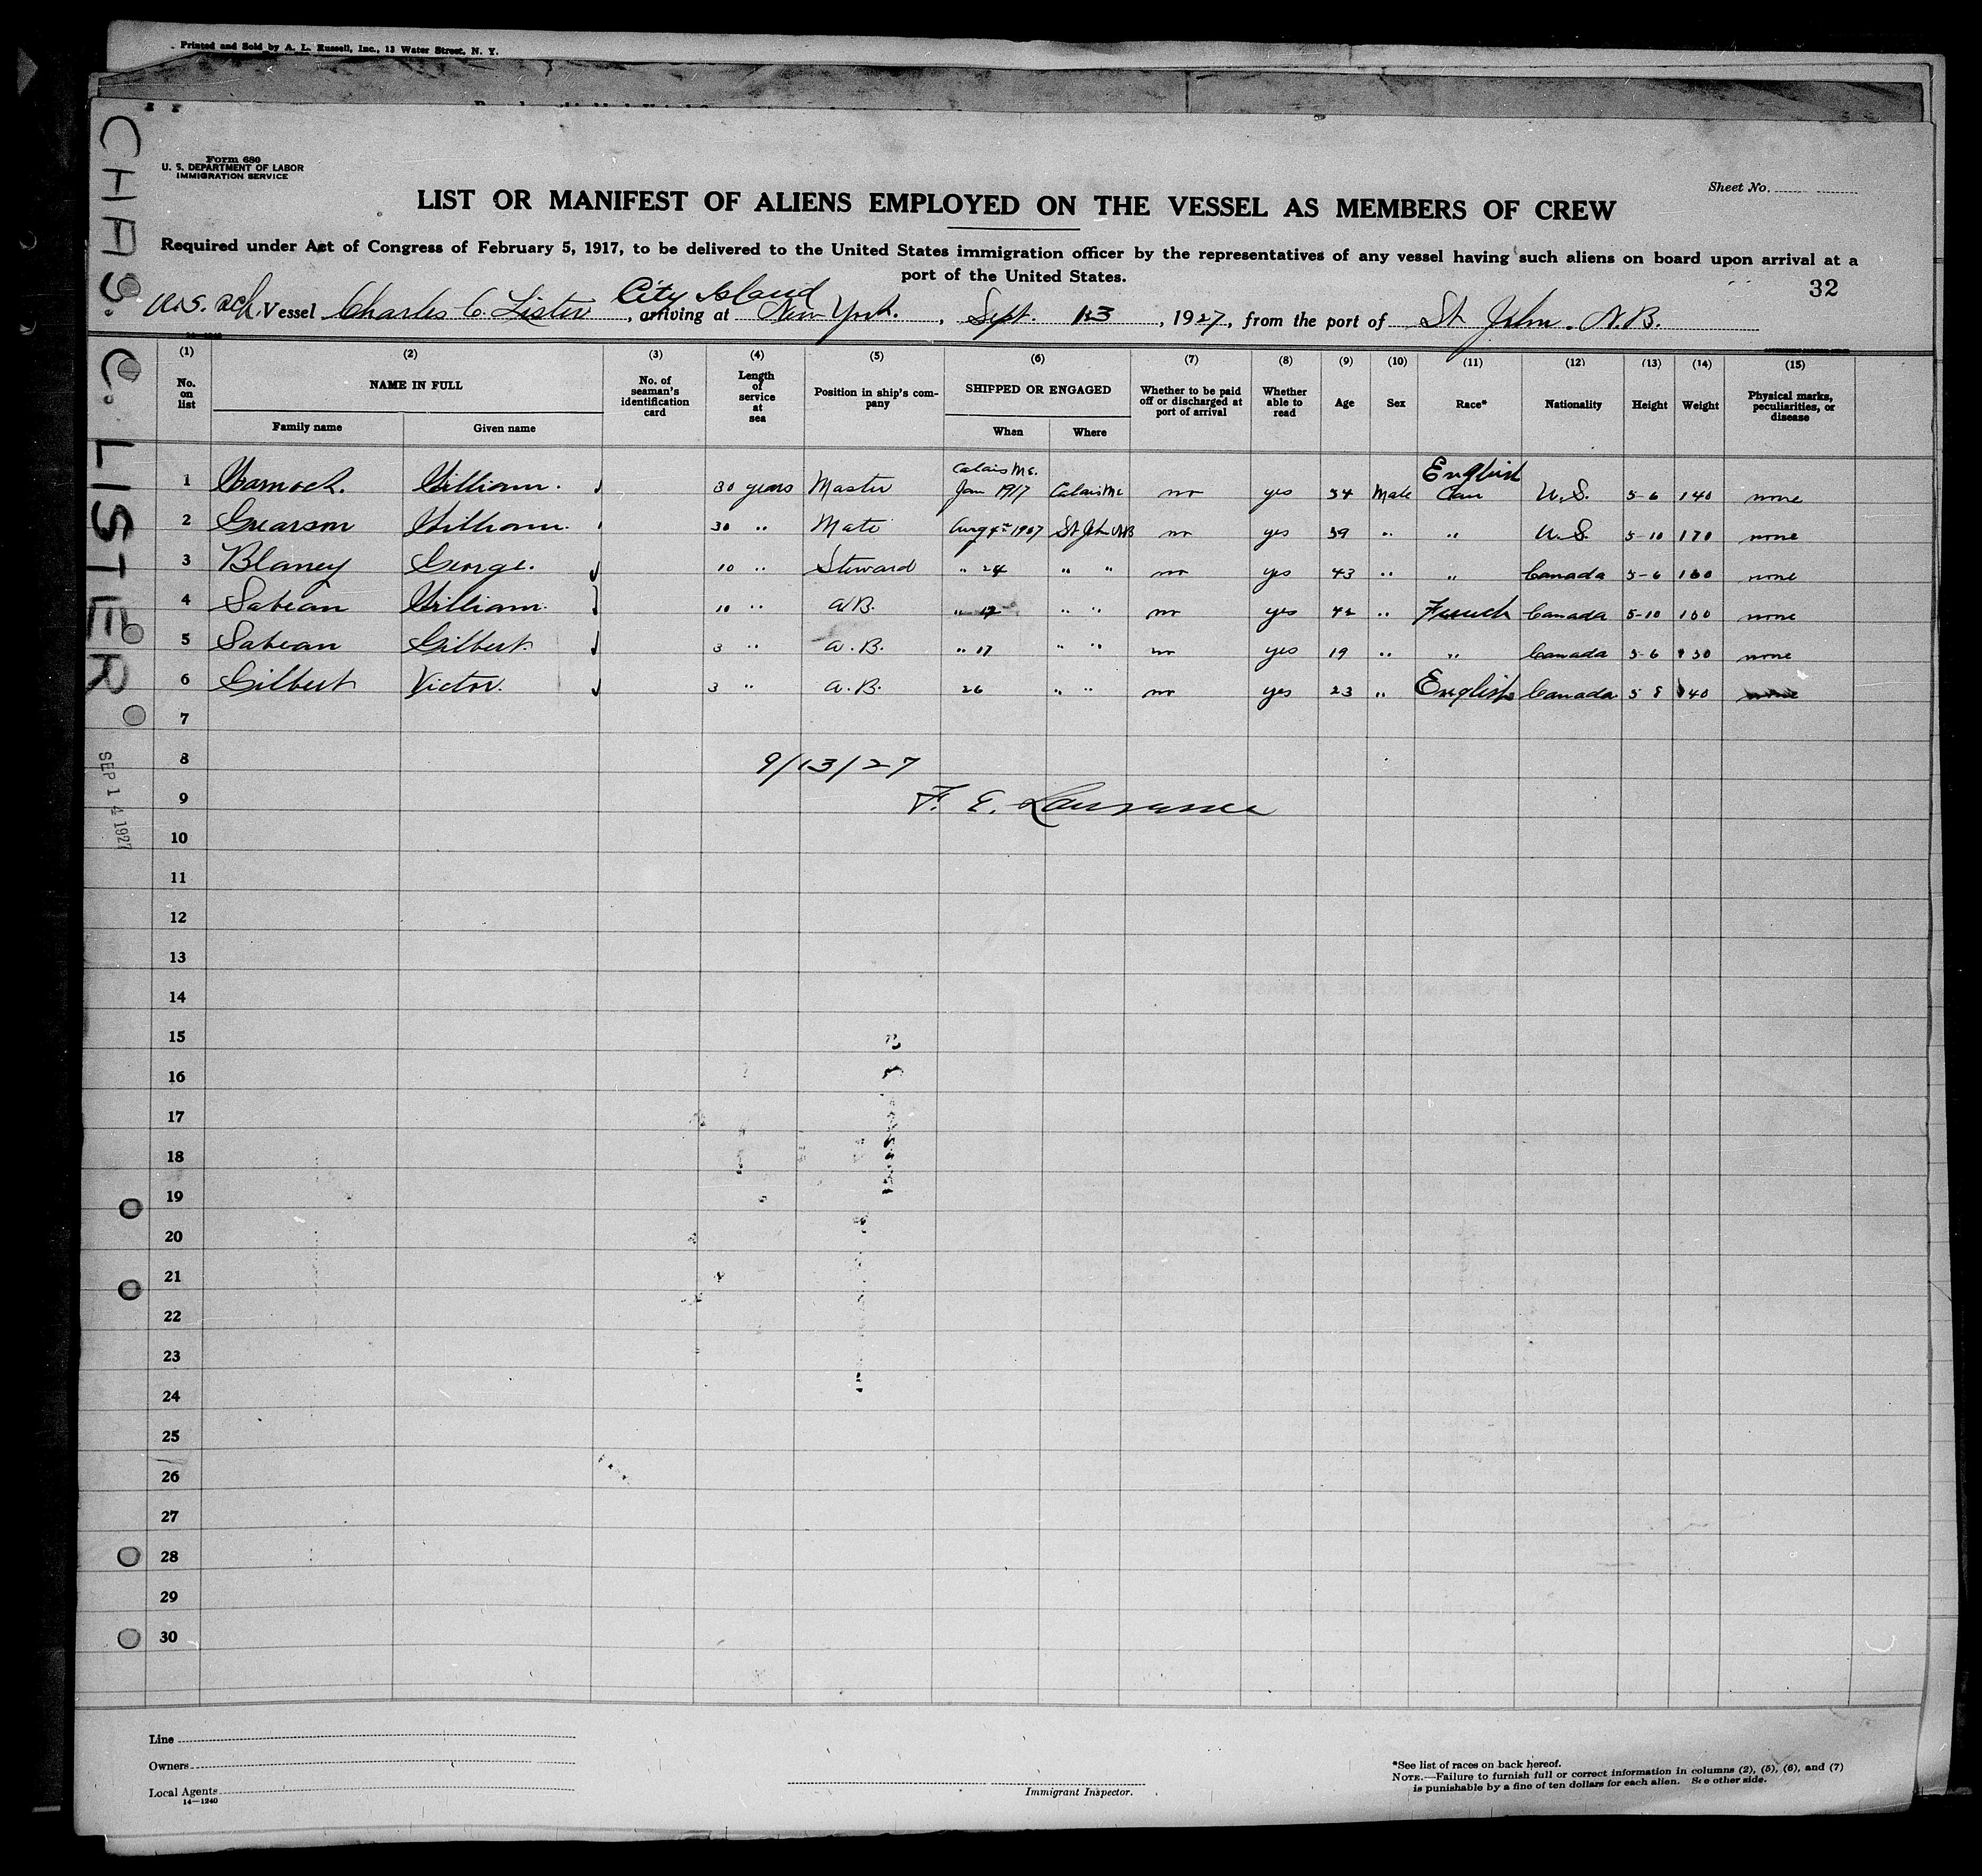 Printed and Sold by A. L. Russell, Inc., 13 Water Street, N. Y.
CHAS. C. LISTER
SEP 14 1927
Form 680
U. S. DEPARTMENT OF LABOR
IMMIGRATION SERVICE
Sheet No.
LIST OR MANIFEST OF ALIENS EMPLOYED ON THE VESSEL AS MEMBERS OF CREW
Required under Act of Congress of February 5, 1917, to be delivered to the United States immigration officer by the representatives of any vessel having such aliens on board upon arrival at a
port of the United States.
32
City Island
U.S. sch. Vessel Charles C. Lister, arriving at New York, Sept. 13, 1927, from the port of St John. N.B.
(1) (2) (3) (4) (5) (6) (7) (8) (9) (10) (11) (12) (13) (14) (15)
No. on list NAME IN FULL No. of seaman's identification card Length of service at sea Position in ship's company SHIPPED OR ENGAGED Whether to be paid off or discharged at port of arrival Whether able to read Age Sex Race* Nationality Height Weight Physical marks, peculiarities, or disease
Family name Given name When Where
Calais Me. English
1 William. 30 years Master Jan 1917 Calais Me no yes 54 Male U.S. 5-6 140 none
2 Grearson William. 30 " Mate Aug 4th St John NB no yes 39 " " U.S. 5-10 170 none
3 Blaney George. 10 " Steward " 24 " " no yes 43 " " Canada 5-6 160 none
4 Sabean William. 10 " A.B. " 12 " " no yes 42 " French Canada 5-10 160 none
5 Sabean Gilbert. 3 " A.B. " 17 " " no yes 19 " " Canada 5-6 130 none
6 Gilbert Victor. 3 " A.B. 26 " " no yes 23 " English Canada 5 8 140 none
7
8
9/13/27
9
F. E. Lawrance
10
11
12
13
14
15
16
17
18
19
20
21
22
23
24
25
26
27
28
29
30
Line
Owners
Local Agents
14—1240
Immigrant Inspector.
*See list of races on back hereof.
NOTE.—Failure to furnish full or correct information in columns (2), (5), (6), and (7)
is punishable by a fine of ten dollars for each alien. See other side.